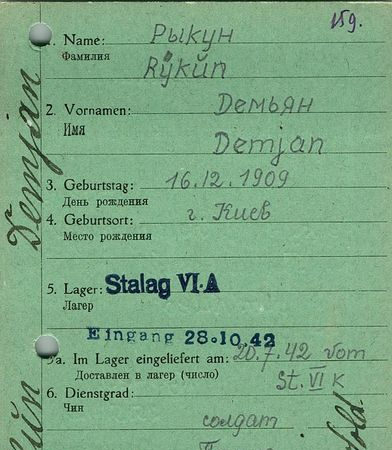 159.
1. Name: Рыкун
Фамилия
Rÿkun
2. Vornamen: Демьян
Имя
Demjan
3. Geburtstag: 16.12.1909
День рождения
4. Geburtsort: г. Киев
Место рождения
5. Lager: Stalag VI.A
Лагер
Eingang 28.10.42
5a. Im Lager eingeliefert am: 20.7.42 vom
Доставлен в лагер (число) St. VI K
6. Dienstgrad:
Чин
солдат
Demjan